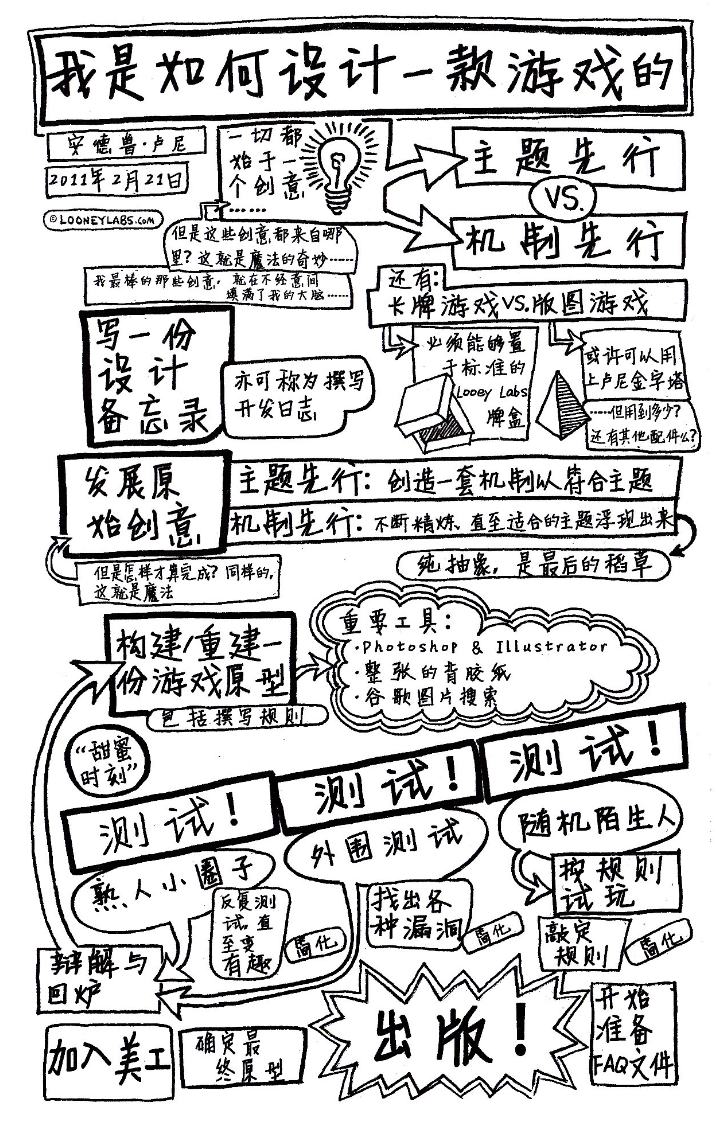 我是如何设计一款游戏的
安德鲁·卢尼
2011年2月21日
©LOONEYLABS.COM
一切都
始于一
个创意
……
但是这些创意都来自哪
里？这就是魔法的奇妙……
我最棒的那些创意，就在不经意间
填满了我的大脑……
主题先行
VS.
机制先行
还有：
卡牌游戏VS.版图游戏
必须能够置
于标准的
Looey Labs
牌盒
或许可以用
上卢尼金字塔
……但用到多少？
还有其他配件么？
写一份
设计
备忘录
亦可称为撰写
开发日志
发展原
始创意
主题先行：创造一套机制以符合主题
机制先行：不断精炼、直至适合的主题浮现出来
纯抽象，是最后的稻草
但是怎样才算完成？同样的，
这就是魔法
构建/重建一
份游戏原型
包括撰写规则
重要工具：
·Photoshop & Illustrator
·整张的背胶纸
·谷歌图片搜索
“甜蜜
时刻”
测试！
测试！
测试！
熟人小圈子
外围测试
随机陌生人
反复测
试，直
至变
有趣
简化
找出各
种漏洞
简化
按规则
试玩
敲定
规则
简化
辩解与
回炉
加入美工
确定最
终原型
出版！
开始
准备
FAQ文件